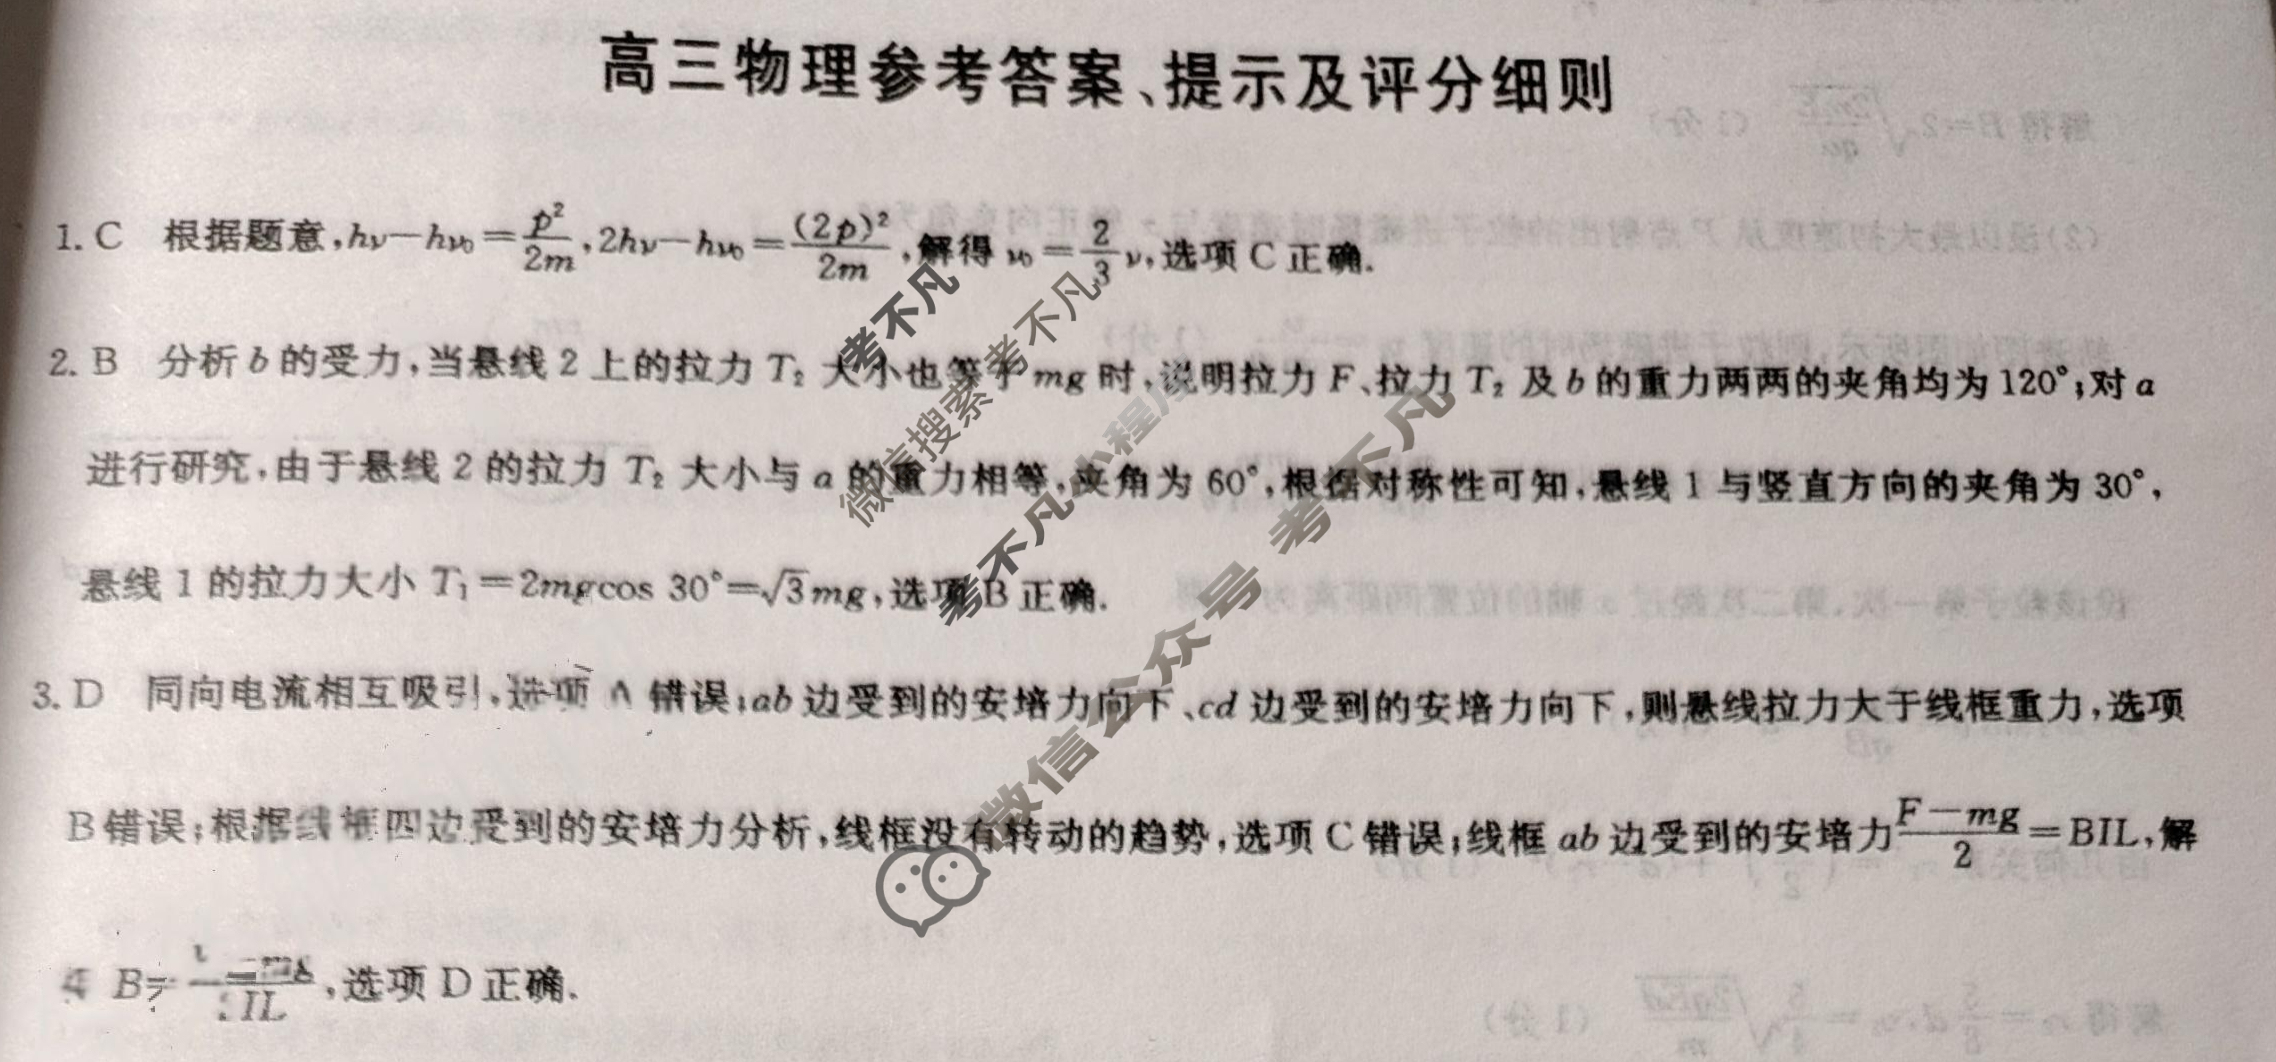 高三物理参考答案、提示及评分细则
1. C 根据题意,hν－hν₀＝p²/2m,2hν－hν₀＝(2p)²/2m,解得 ν₀＝2/3ν,选项 C 正确.
2. B 分析 b 的受力,当悬线 2 上的拉力 T₂ 大小也等于 mg 时,说明拉力 F、拉力 T₂ 及 b 的重力两两的夹角均为 120°;对 a
进行研究,由于悬线 2 的拉力 T₂ 大小与 a 的重力相等,夹角为 60°,根据对称性可知,悬线 1 与竖直方向的夹角为 30°,
悬线 1 的拉力大小 T₁＝2mgcos 30°＝√3mg,选项 B 正确.
3. D 同向电流相互吸引,选项 A 错误;ab 边受到的安培力向下、cd 边受到的安培力向下,则悬线拉力大于线框重力,选项
B 错误;根据线框四边受到的安培力分析,线框没有转动的趋势,选项 C 错误;线框 ab 边受到的安培力 F－mg/2＝BIL,解
B＝ －mg/IL,选项 D 正确.
考不凡
微信搜索 考不凡
考不凡 小程序
微信公众号 考不凡